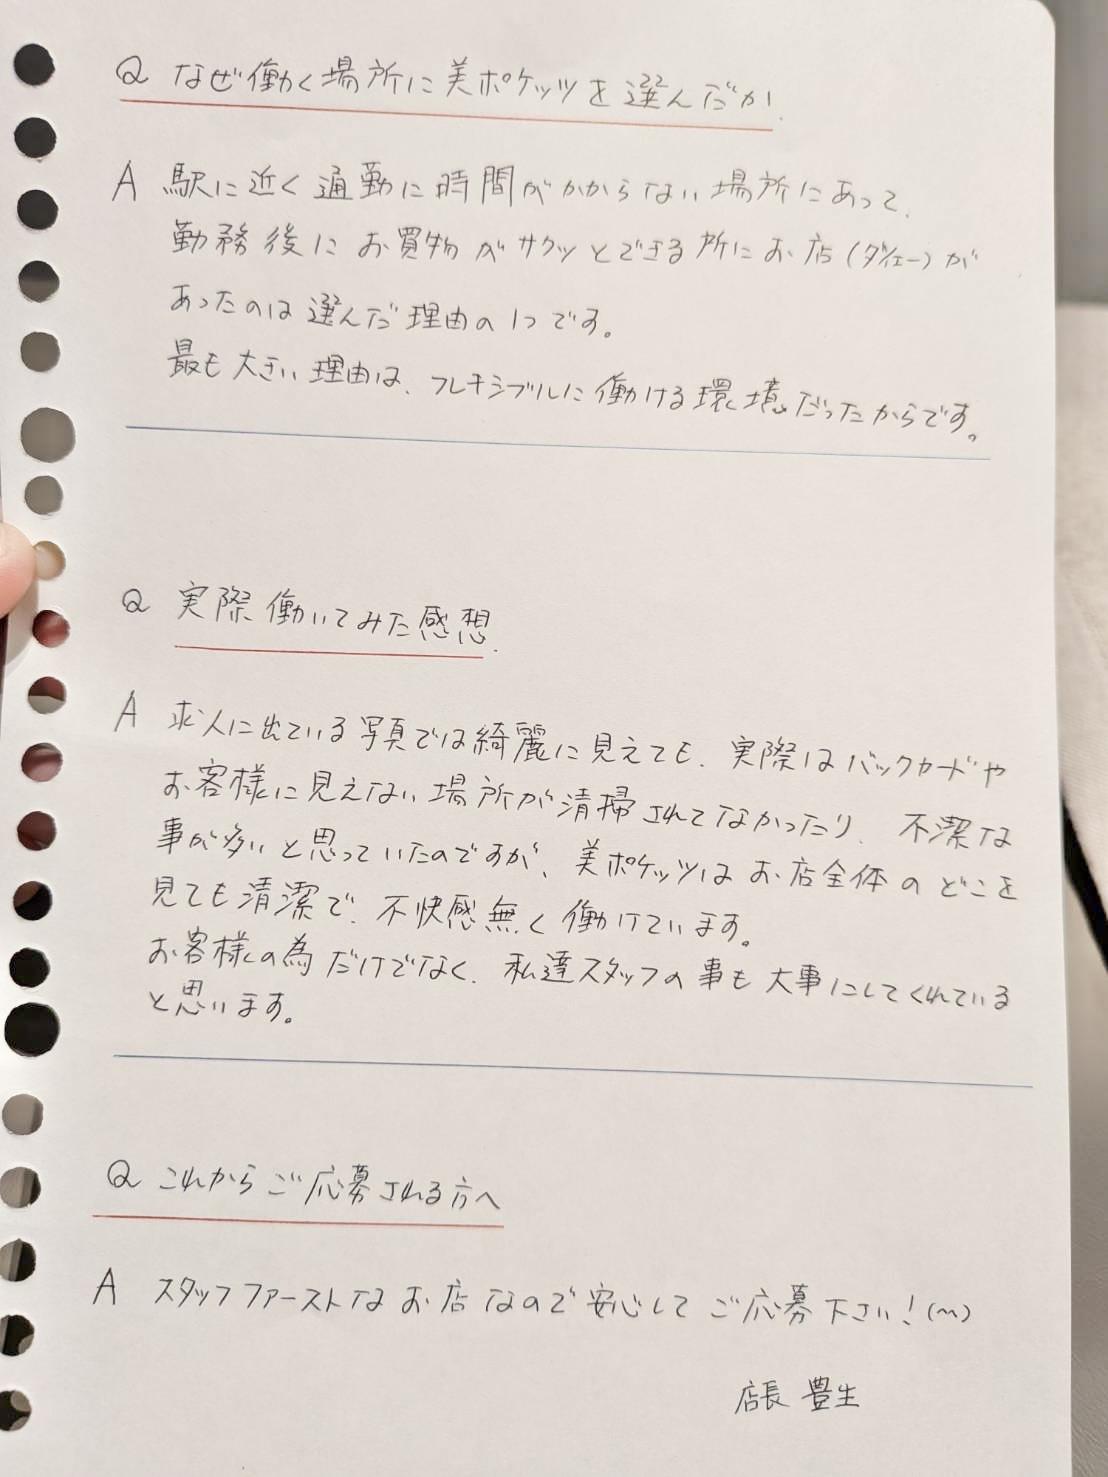 Q なぜ働く場所に美ポケッツを選んだか.
A 駅に近く通勤に時間がかからない場所にあって、
勤務後にお買物がサクッとできる所にお店(ダイエー)が
あったのは選んだ理由の1つです。
最も大きい理由は、フレキシブルに働ける環境だったからです。
Q 実際働いてみた感想.
A 求人に出ている写真では綺麗に見えても、実際はバックカードや
お客様に見えない場所が清掃されてなかったり、不潔な
事が多いと思っていたのですが、美ポケッツはお店全体のどこを
見ても清潔で、不快感無く働けています。
お客様の為だけでなく、私達スタッフの事も大事にしてくれている
と思います。
Q これからご応募される方へ
A スタッフファーストなお店なので安心してご応募下さい!(^^)
店長 豊生